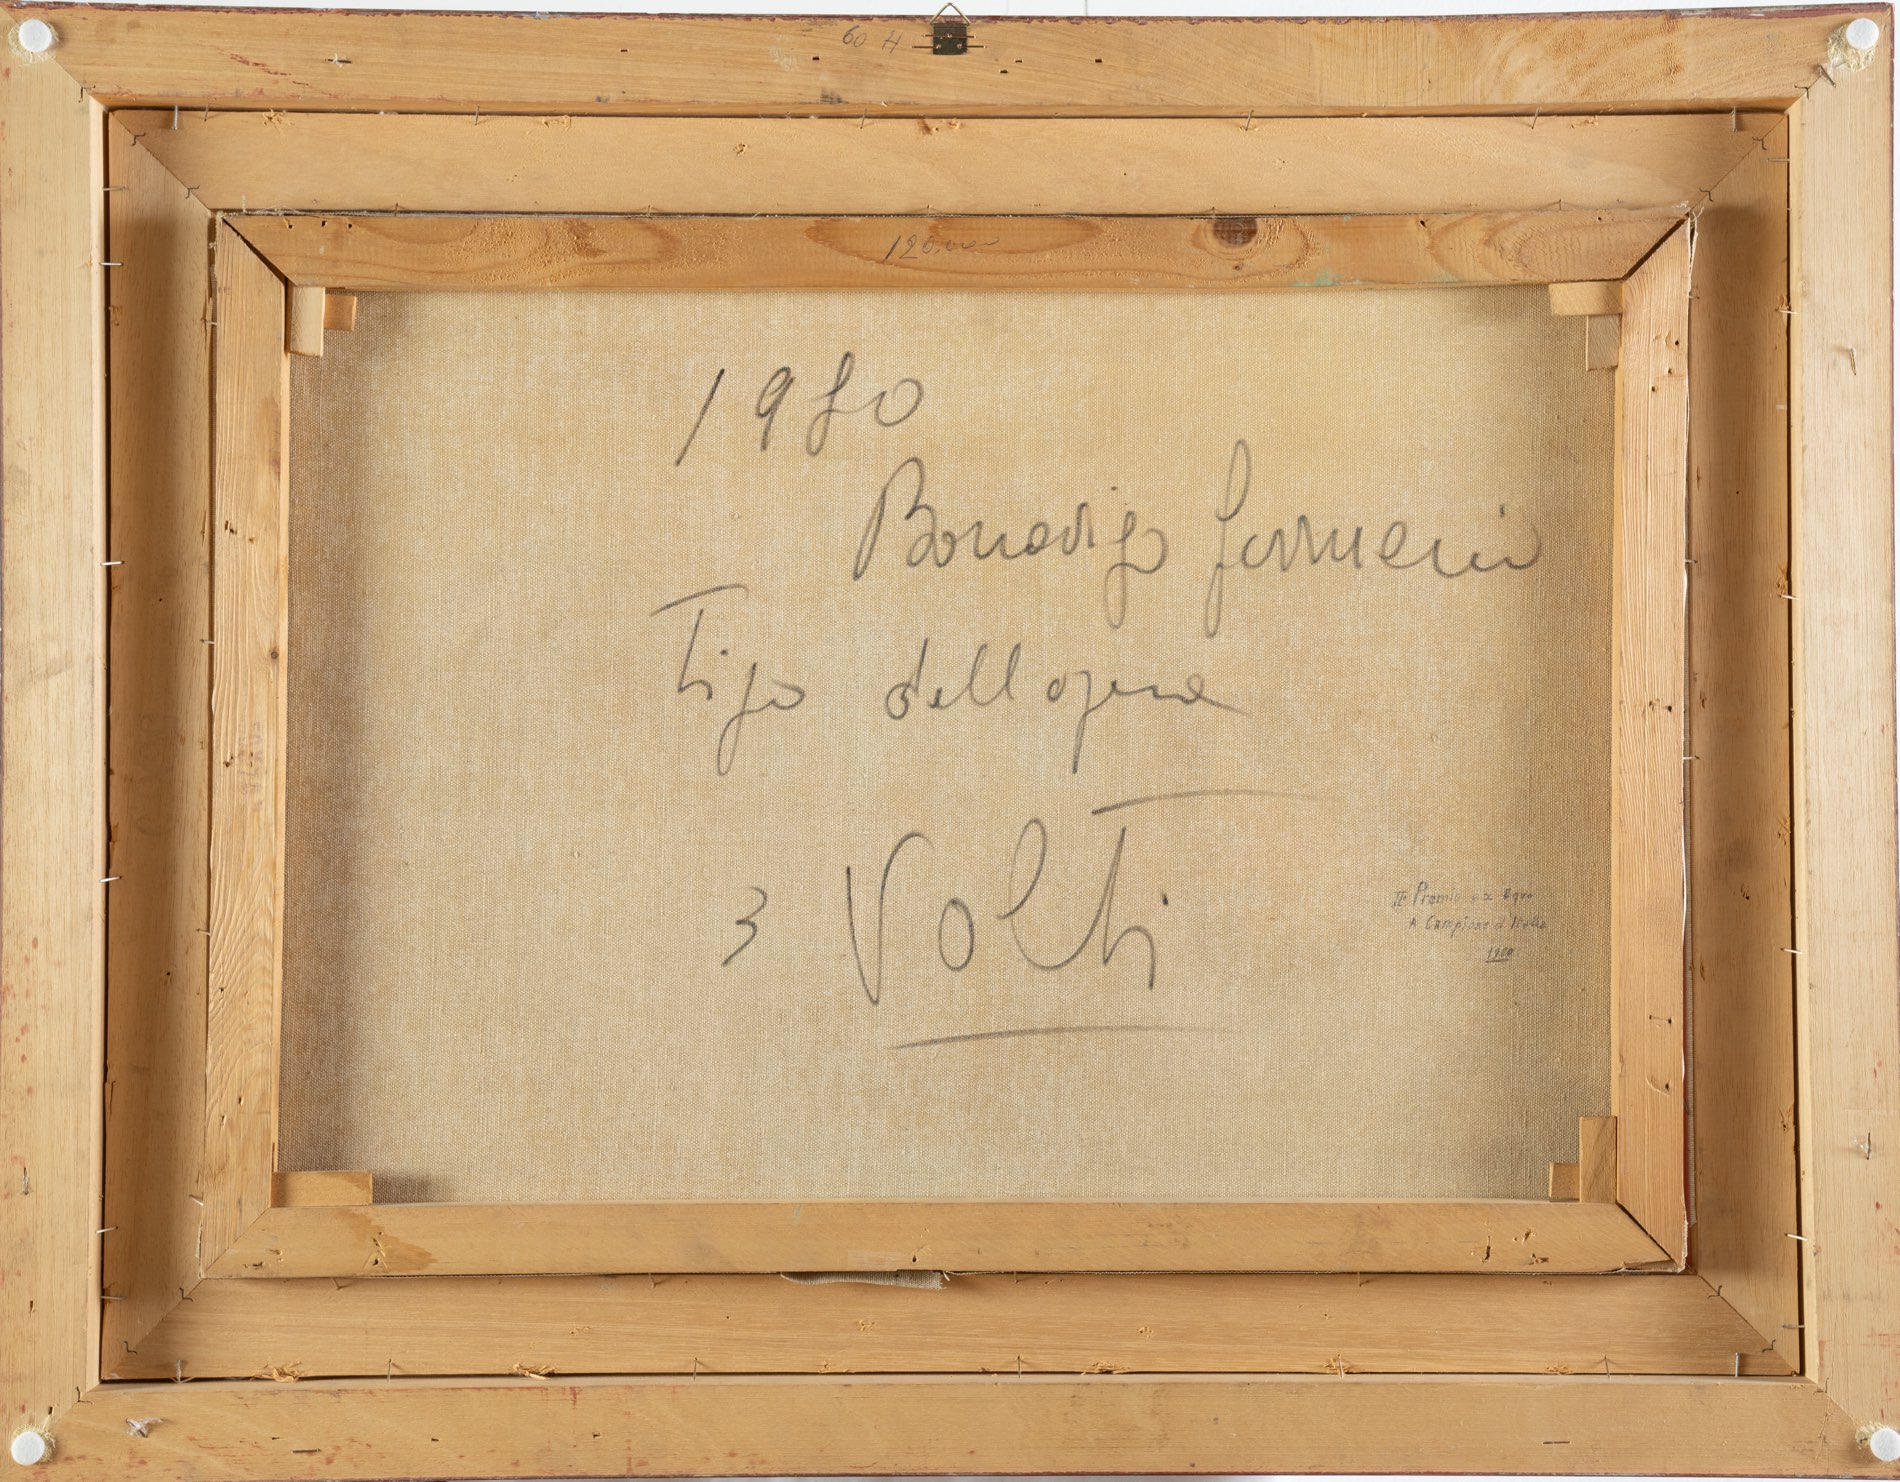 60 H
120.000
1980
Bonarigo
Tipo dell opera
3 Volti
II° Premio ex Equo
A Campione d'Italia
1980